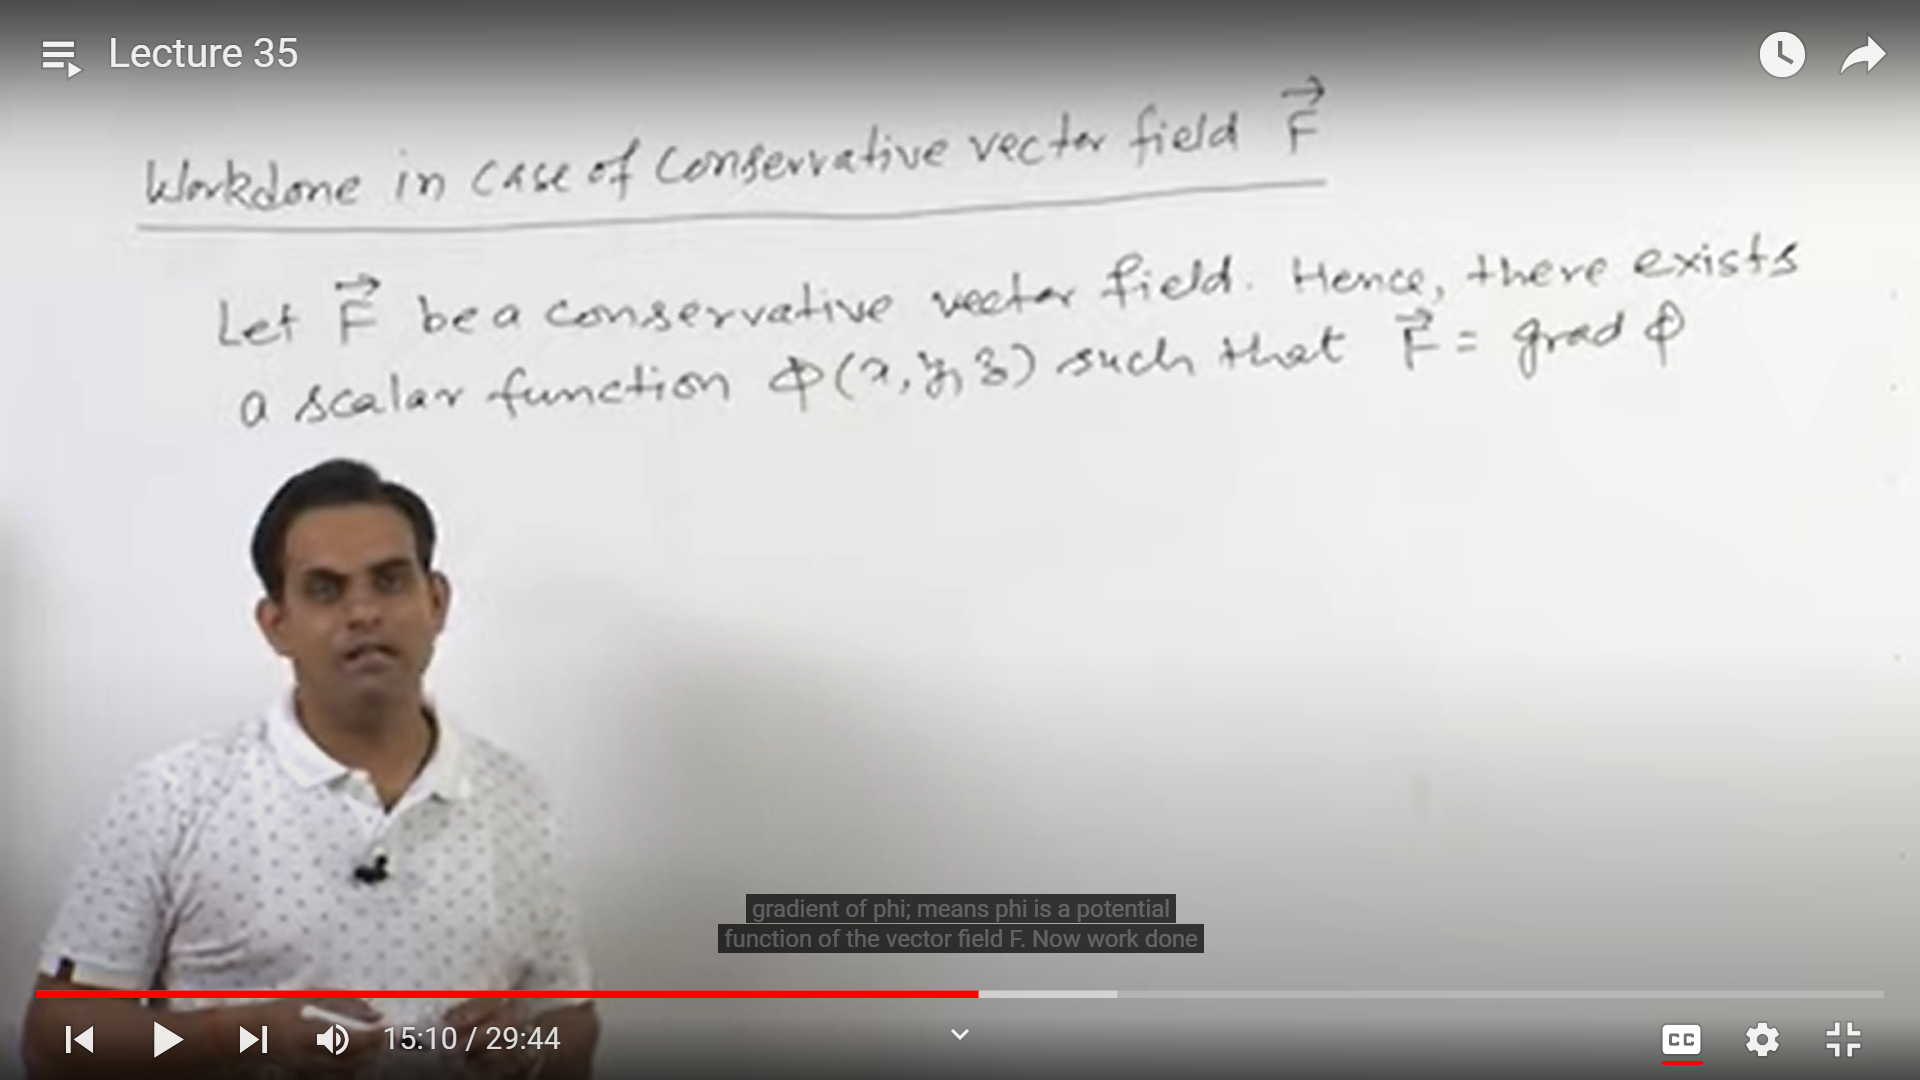 Lecture 35
Workdone in case of conservative vector field F
Let F be a conservative vector field. Hence, there exists
a scalar function Φ(x, y, z) such that F = grad Φ
gradient of phi; means phi is a potential
function of the vector field F. Now work done
15:10 / 29:44
CC